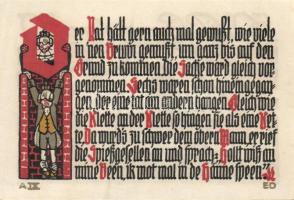 Der Rat hätt gern auch mal gewußt, wie viele
in nen Brunn gemußt um ganz bis auf den
Grund zu kommen. Die Sache ward gleich vor-
genommen. Sechs waren schon hineingegan-
gen, der eine tat am andern hangen. Gleich wie
die Klette an der Klette so hingen sie als eine Ket-
te. Da wurd's zu schwer dem obern Mann, er rief
die Spießgesellen an und sprach: Holl wiß an
mine Been, ik wot mal in de Hänne speen.
A IX
ED